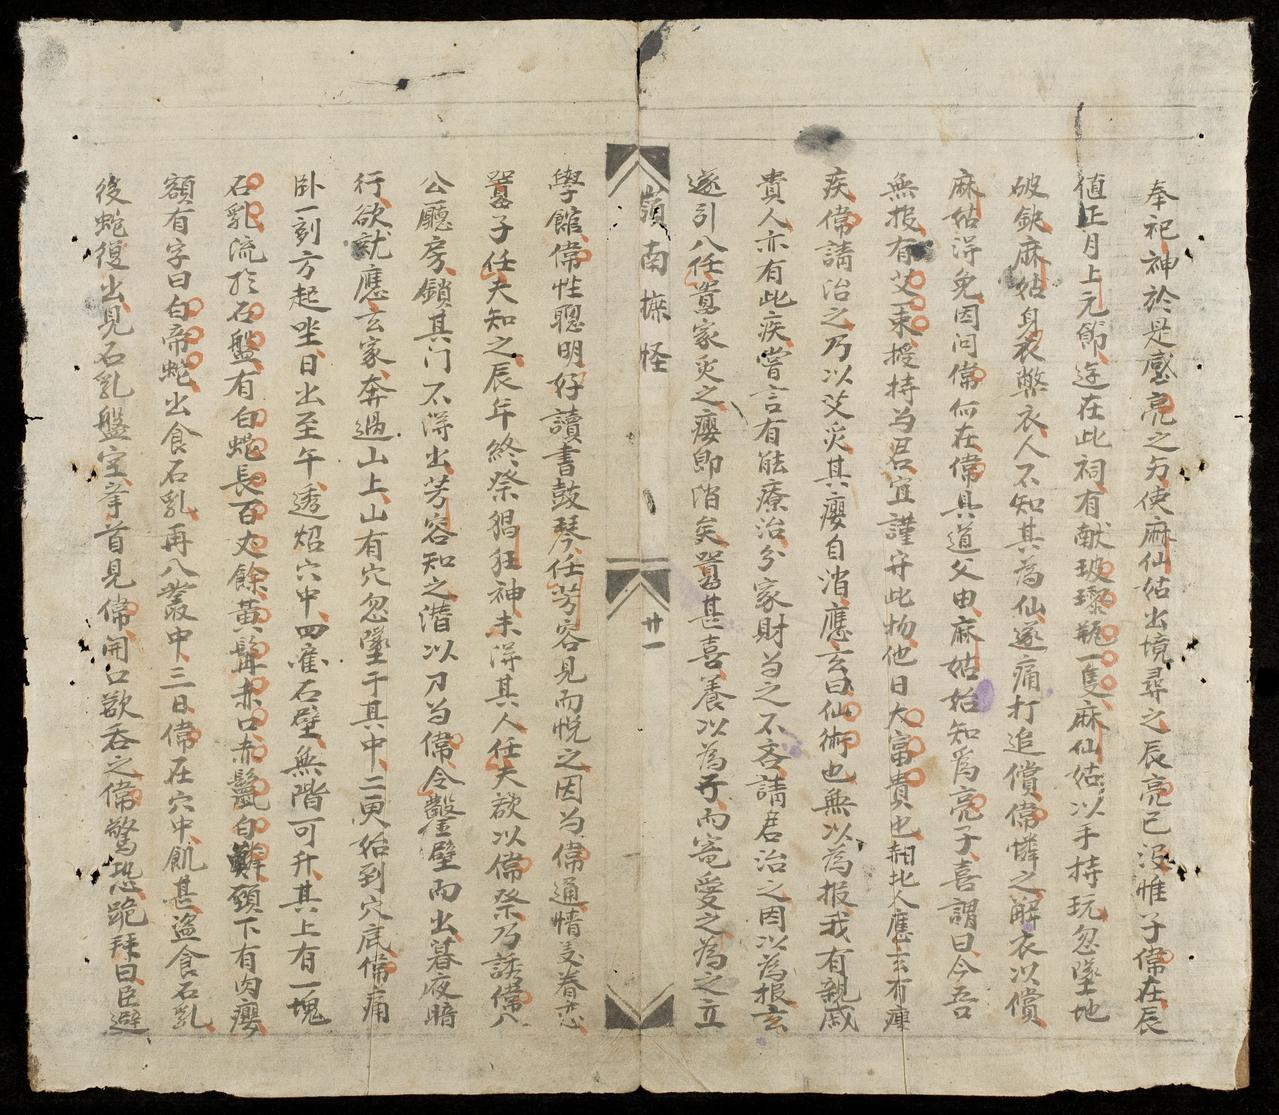 奉祀神於是感亮之労使麻仙姑出境尋之辰亮已沒惟子偉在辰
值正月上元節遊在此祠有献玻瓈瓶一隻麻仙姑以手持玩忽墜地
破缺麻姑身衣幣衣人不知其為仙遂痛打追償偉憐之解衣以償
麻姑得免因问偉何在偉具道父由麻姑始知爲亮子喜謂曰今吾
無报有艾一束授持为君宜謹守此物他日大富貴也北人應玄有瘰
疾偉請治之乃以艾炙其瘿自消應玄曰仙術也無以為报我有親戚
貴人亦有此疾嘗言有能療治分家財为之不吝請君治之因以為报玄
遂引入任嚣家炙之瘿即消矣嚣甚喜養以為子而寵愛之為之立
嶺南摭怪
廿一
學館偉性聰明好讀書鼓琴任芳容見而悦之因为偉通情隻眷恋
嚣子任夫知之辰年終祭猖狂神未得其人任夫欲以偉祭乃誘偉入
公廳房鎖其门不得出芳容知之潜以刀为偉令鑿壁而出暮夜暗
行欲就應玄家奔過山上山有穴忽墜于其中二更始到穴底偉痛
卧一刻方起坐日出至午透炤穴中四准石壁無階可升其上有一塊
石乳流於石盤有白蛇長百丈餘黄髯赤口赤鬣白鱗頸下有肉癭
額有字曰白帝蛇出食石乳再入叢中三日偉在穴中飢甚盗食石乳
後蛇復出見石乳盤空举首見偉開口欲吞之偉驚恐跪拜曰臣避